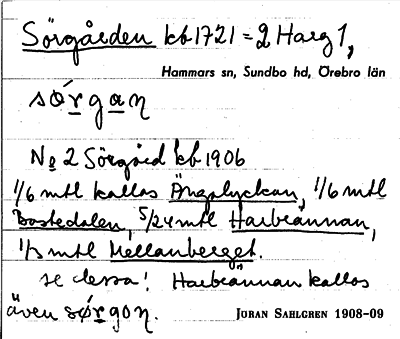 Sörgården kb 1721 = 2 Harg 1,
Hammars sn, Sundbo hd, Örebro län
sǿrgaṇ
No 2 Sörgård kb 1906
1/6 mtl kallas Ängslyckan, 1/6 mtl
Bastedalen, 5/24 mtl Harbrännan,
1/3 mtl Mellanberget.
se dessa! Harbrännan kallas
även sǿrgoṇ.
JÖRAN SAHLGREN 1908-09